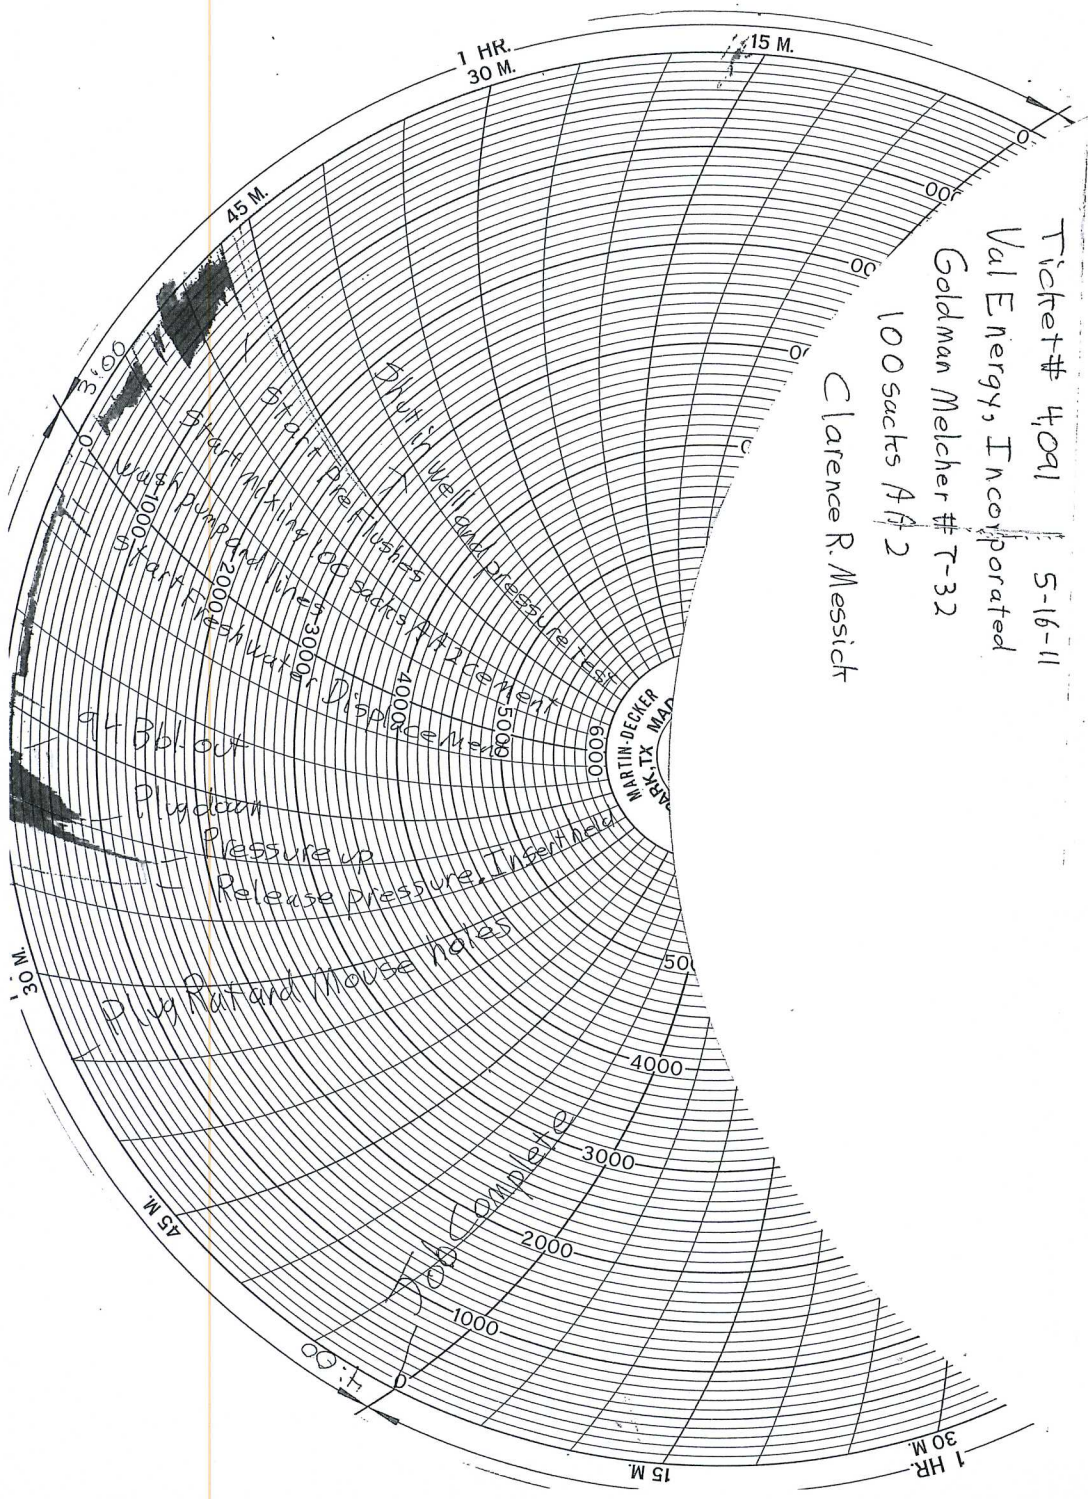 Ticket# 4,091 5-16-11
Val Energy, Incorporated
Goldman Melcher # 7-32
100 sacks AA2
Clarence R. Messick
1 HR.
30 M.
15 M.
45 M.
3:00
0
1000
2000
3000
4000
5000
6000
MARTIN-DECKER
Shut in Well and pressure test
Start Preflushes
Start Mixing 100 sacks AA2 cement
Wash pump and lines
Start Fresh Water Displacement
Bbl. out
Plug down
Pressure up
Release pressure. Insert held
Plug Rat and Mouse holes
Job Complete
30 M.
45 M.
4:00
0
1000
2000
3000
4000
15 M.
30 M.
1 HR.